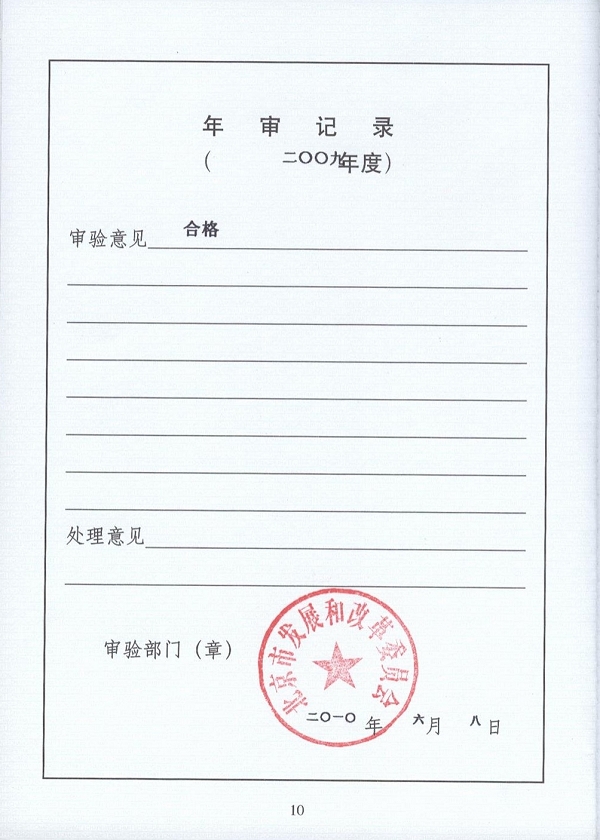 年审记录
（二〇〇九年度）
审验意见 合格
处理意见
北京市发展和改革委员会
审验部门（章）
二〇一〇年六月八日
10